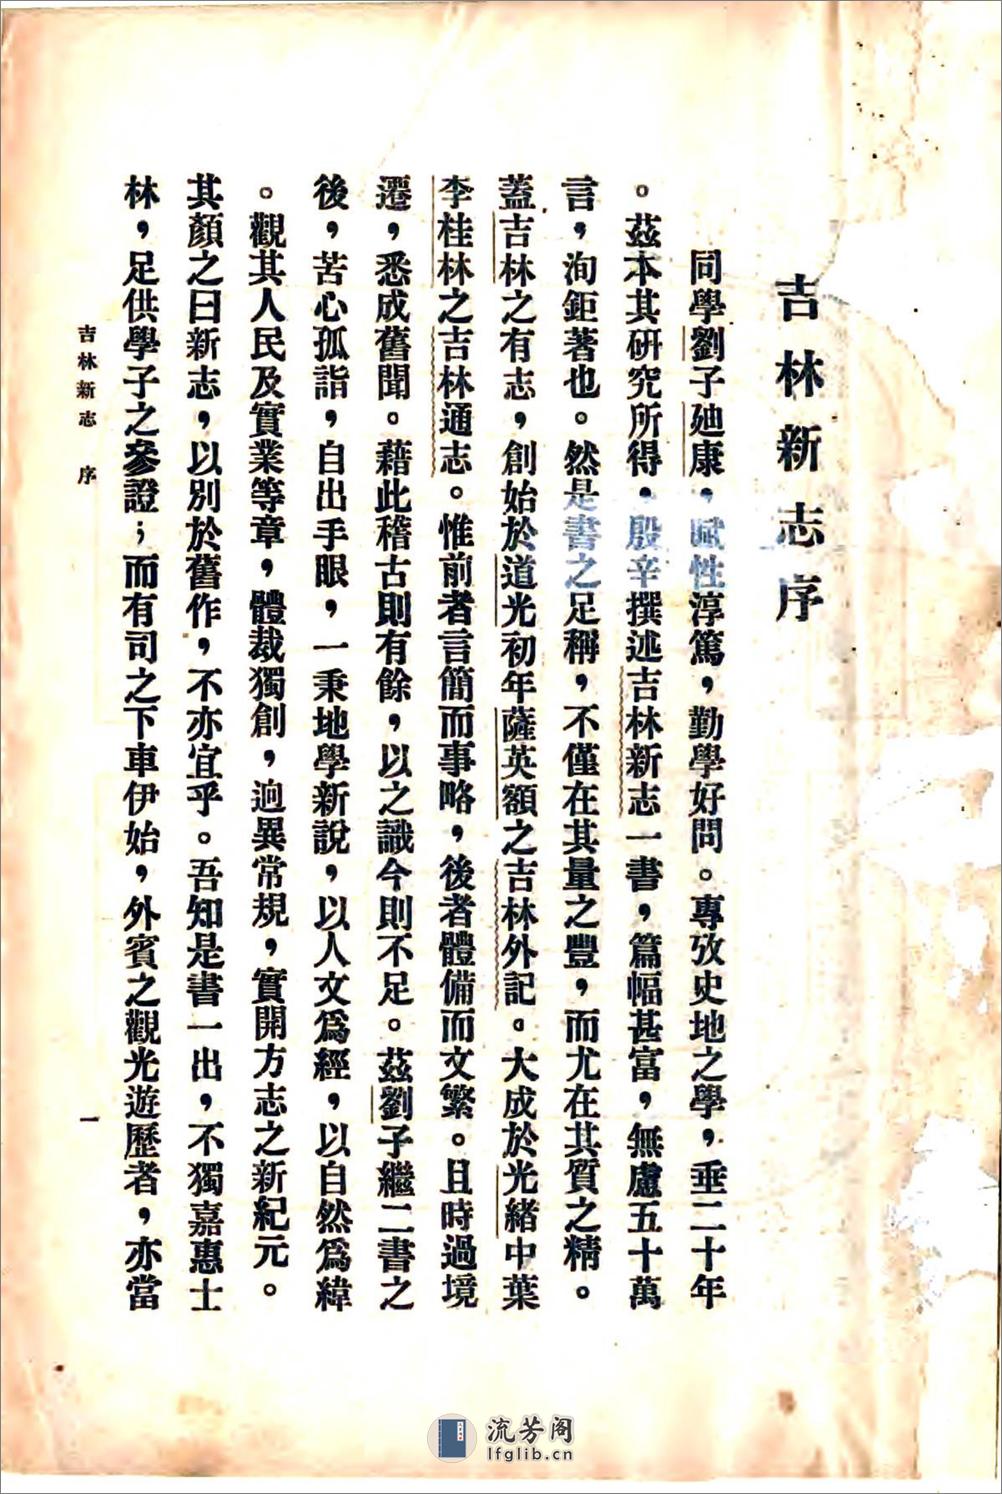 吉林新志序
同學劉子廸康，賦性淳篤，勤學好問。專攷史地之學，垂二十年
。茲本其研究所得，殷辛撰述吉林新志一書，篇幅甚富，無慮五十萬
言，洵鉅著也。然是書之足稱，不僅在其量之豐，而尤在其質之精。
蓋吉林之有志，創始於道光初年薩英額之吉林外記。大成於光緒中葉
李桂林之吉林通志。惟前者言簡而事略，後者體備而文繁。且時過境
遷，悉成舊聞。藉此稽古則有餘，以之識今則不足。茲劉子繼二書之
後，苦心孤詣，自出手眼，一秉地學新說，以人文爲經，以自然爲緯
。觀其人民及實業等章，體裁獨創，逈異常規，實開方志之新紀元。
其顏之曰新志，以別於舊作，不亦宜乎。吾知是書一出，不獨嘉惠士
林，足供學子之參證；而有司之下車伊始，外賓之觀光遊歷者，亦當
吉林新志 序
一
流芳阁
lfglib.cn